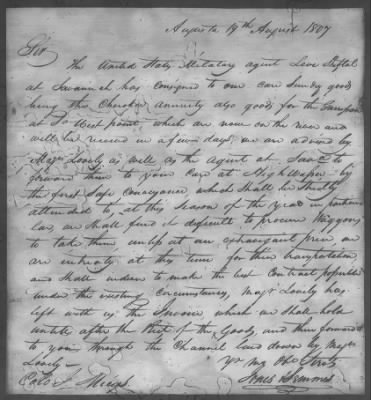 Augusta 19th August 1807
Sir
The United States Military agent Levi Sheftal
at Savannah has consigned to our care Sundry goods
being this Cherokee annuity also goods for the
at So West point which are now on the river and
will be received in a few days, we are advised by
Majr Lovely as well as the agent at Savh to
forward them to your care at Highwassee by
the first Safe Conveyance which Shall be Strictly
attended to, at this Season of the Year in particu
lar, we shall find it difficult to procure Waggons
to take them, unless at an extravagant price we
are enquiring at this time for their transportation,
and Shall endeavor to make the best Contract possible
under the existing Circumstances, Majr Lovely has
left with us the Invoice which we shall hold
untill after the Rect of the Goods, and then forward
to you through the Channel laid down by Majr
Lovely —
Yr my Obt Servts
Colo. J. Meigs